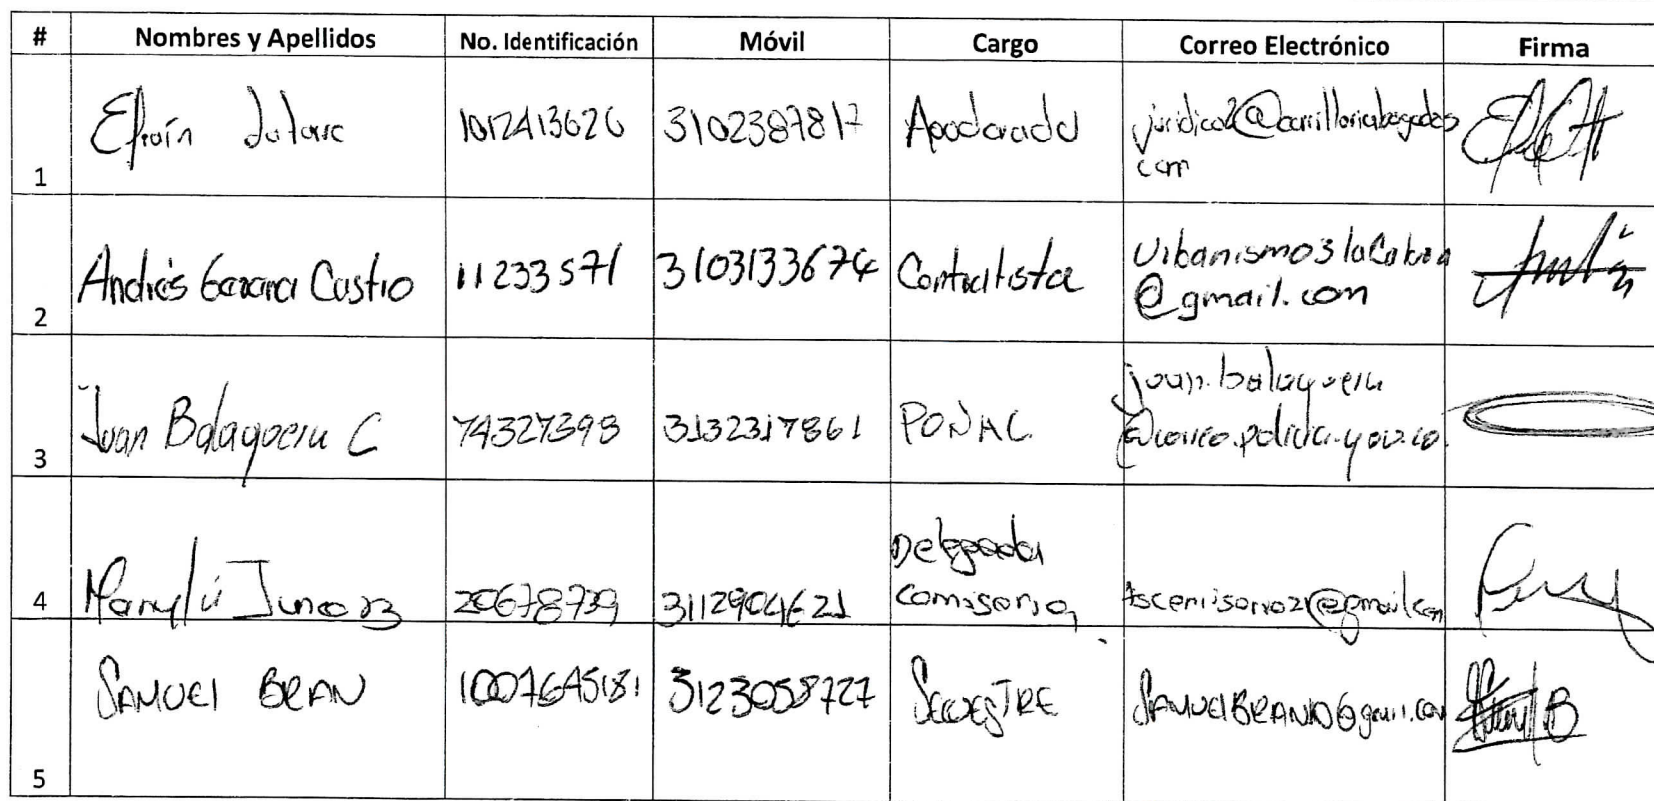 # Nombres y Apellidos No. Identificación Móvil Cargo Correo Electrónico Firma
1 Efraín 1012413626 3102387817 Apoderado juridico2@carrilloriabogados
com
2 Andrés Castro 11233571 3103133674 Contratista Urbanismo3laCalera
@gmail.com
3 Juan Balaguera C 74327398 3132317861 PONAL juan.balaguera
@correo.policia.gov.co.
4 20678739 3112904621 Delegada
Comisaria @gmail.com
5 SAMUEL BRAN 1007645181 3123058727 SECUESTRE SAMUELBRAN10@gmail.com